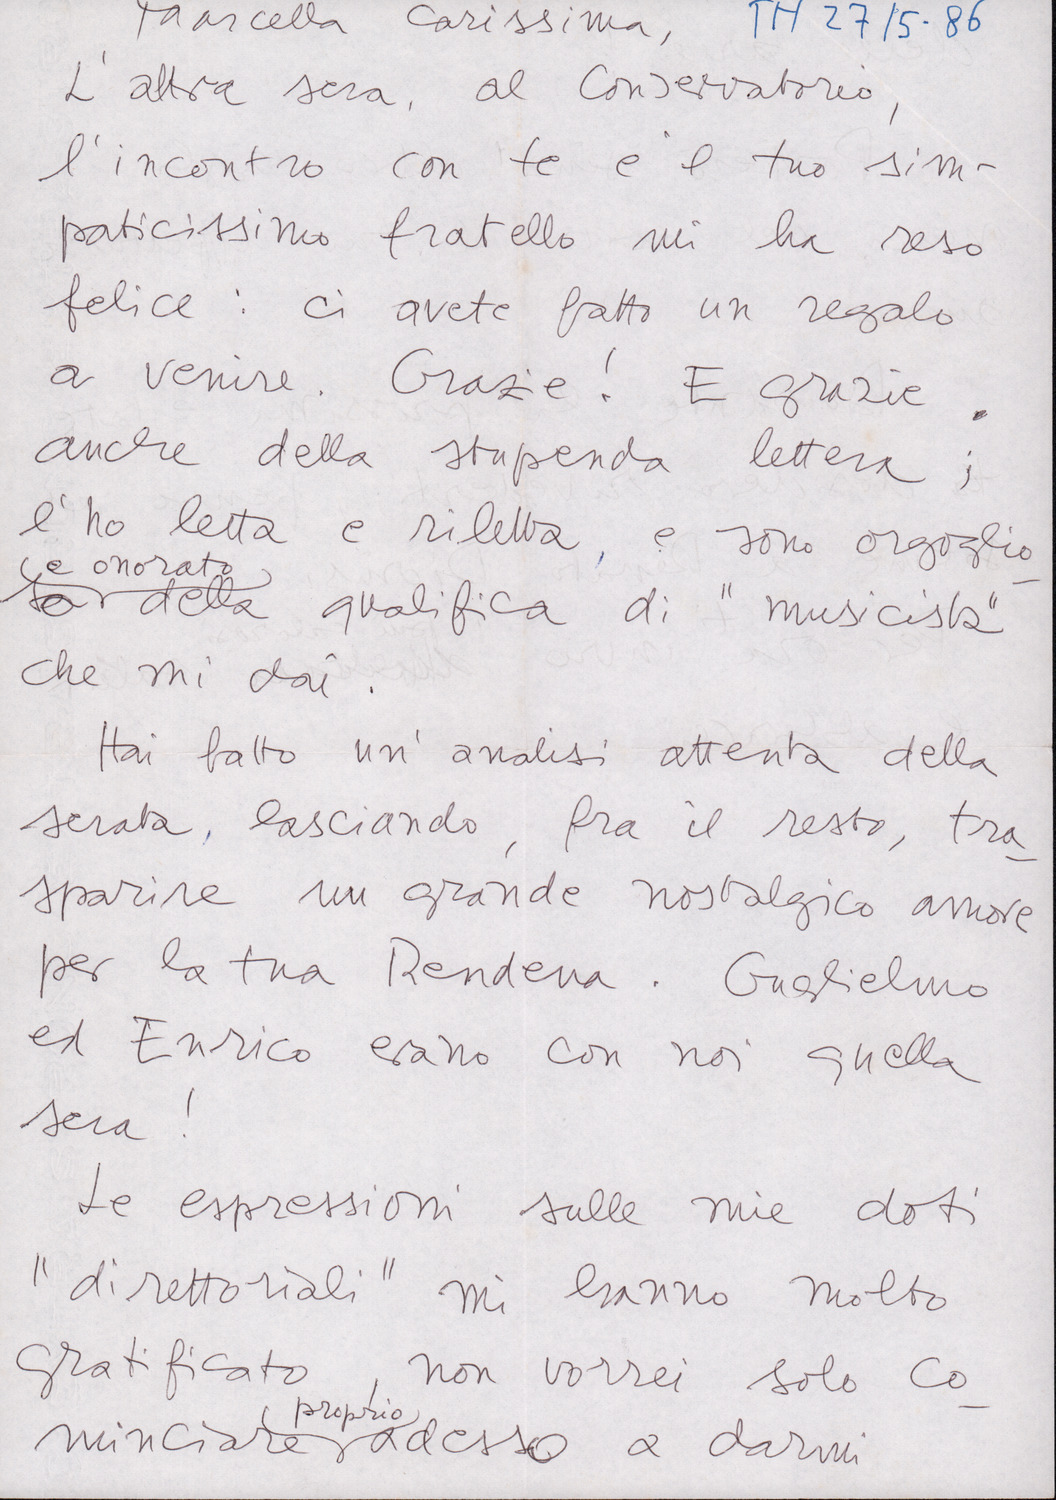 Marcella Carissima, TH 27/5-86
L'altra sera, al Conservatorio,
l'incontro con te e il tuo sim-
paticissimo fratello mi ha reso
felice: ci avete fatto un regalo
a venire. Grazie! E grazie
anche della stupenda lettera;
l'ho letta e riletta, e sono orgoglio-
e onorato
so della qualifica di "musicista"
che mi dai.
Hai fatto un'analisi attenta della
serata, lasciando, fra il resto, tra-
sparire un grande nostalgico amore
per la tua Rendena. Guglielmo
ed Enrico erano con noi quella
sera!
Le espressioni sulle mie doti
"direttoriali" mi hanno molto
gratificato, non vorrei solo co-
proprio
minciare adesso a darmi